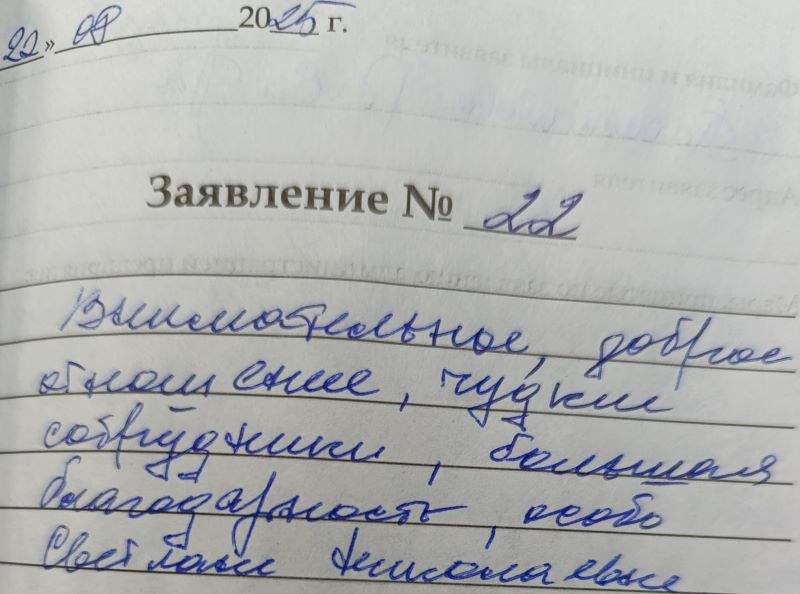 22» 08 2025 г.
Заявление № 22
Внимательное, доброе
отношение, чудкие
сотрудники, большая
благодарность, особо
Светлане Николаевне